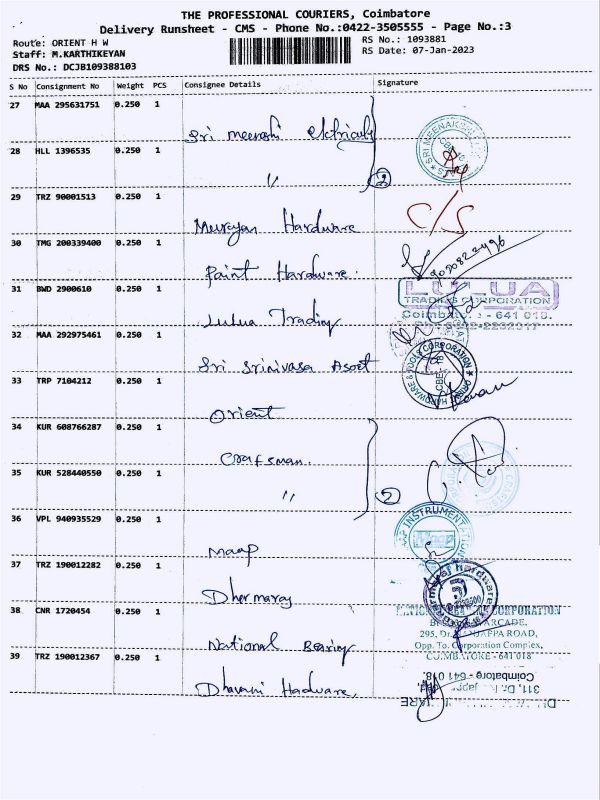 THE PROFESSIONAL COURIERS, Coimbatore
Delivery Runsheet - CMS - Phone No.:0422-3505555 - Page No.:3
Route: ORIENT H W
RS No.: 1093881
Staff: M.KARTHIKEYAN
RS Date: 07-Jan-2023
DRS No.: DCJB109388103
S No Consignment No Weight PCS Consignee Details Signature
27 MAA 295631751 0.250 1
Sri Meenashi Elctricals
28 HLL 1396535 0.250 1
〃 2
29 TRZ 90001513 0.250 1
C/S
Murugan Hardware
30 TMG 200339400 0.250 1
Paint Hardware.
31 BWD 2900610 0.250 1
LULUA
TRADING CORPORATION
Coimbatore - 641 018.
Lulua Trading
32 MAA 292975461 0.250 1
Sri Srinivasa Asset
33 TRP 7104212 0.250 1
Orient
34 KUR 608766287 0.250 1
Craftsman.
35 KUR 528440550 0.250 1
〃 2
36 VPL 940935529 0.250 1
INSTRUMENTATION
Maap
Maap
37 TRZ 190012282 0.250 1
Dharmaraj
38 CNR 1720454 0.250 1
CORPORATION
ARCADE,
295, Dr. NANJAPPA ROAD,
Opp. To. Corporation Complex,
COIMBATORE - 641 018
National Bearing
39 TRZ 190012367 0.250 1
Coimbatore - 641 018.
311, Dr.
Dharani Hadware.